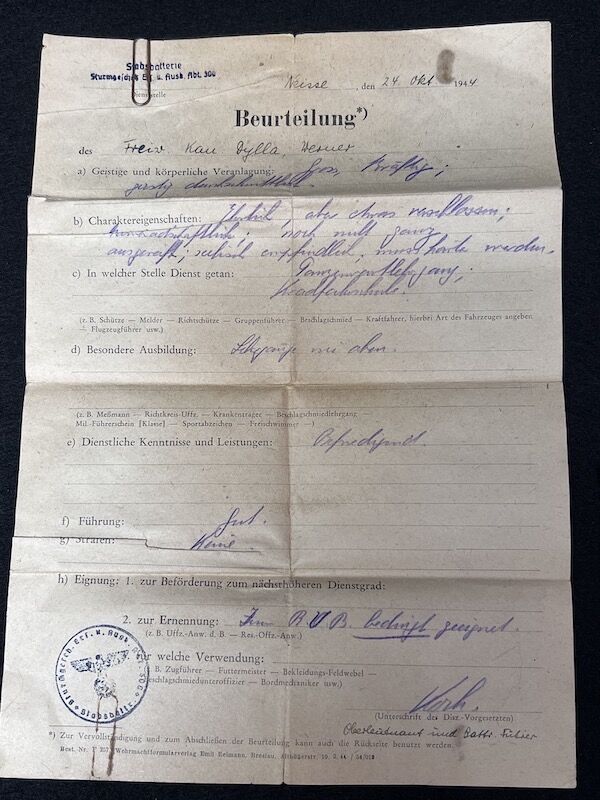 Stabsbatterie
Sturmgesch. Ers. u. Ausb. Abt. 300
Dienststelle
Neisse, den 24. Okt 1944
Beurteilung*)
des Freiw Kan Dylla, Werner
a) Geistige und körperliche Veranlagung: Gross, kräftig;
geistig durchschnittlich.
b) Charaktereigenschaften: Ehrlich, aber etwas verschlossen;
kameradschaftlich; noch nicht ganz
ausgereift; seelisch empfindlich, muss härter werden.
c) In welcher Stelle Dienst getan:
(z. B. Schütze — Melder — Richtschütze — Gruppenführer — Beschlagschmied — Kraftfahrer, hierbei Art des Fahrzeuges angeben
— Flugzeugführer usw.)
d) Besondere Ausbildung: Lehrgänge wie oben.
(z. B. Meßmann — Richtkreis-Uffz. — Krankenträger — Beschlagschmiedlehrgang —
Mil.-Führerschein [Klasse] — Sportabzeichen — Freischwimmer —)
e) Dienstliche Kenntnisse und Leistungen: Befriedigend.
f) Führung: Gut.
g) Strafen: Keine.
h) Eignung: 1. zur Beförderung zum nächsthöheren Dienstgrad:
2. zur Ernennung: Zum R.O.B. bedingt geeignet
(z. B. Uffz.-Anw. d. B. — Res.-Offz.-Anw.)
für welche Verwendung:
B. Zugführer — Futtermeister — Bekleidungs-Feldwebel —
schlagschmiedunteroffizier — Bordmechaniker usw.)
Koch.
(Unterschrift des Disz.-Vorgesetzten)
Oberleutnant und Battr.-Führer
*) Zur Vervollständigung und zum Abschließen der Beurteilung kann auch die Rückseite benutzt werden.
Best. Nr. Wehrmachtformularverlag Emil Reimann, Breslau,